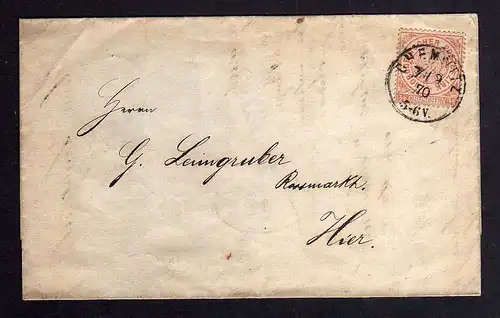 CHEMNITZ
7 9
70
5-6V.
Herrn
G. Leimgruber
Rossmarkt.
Hier.